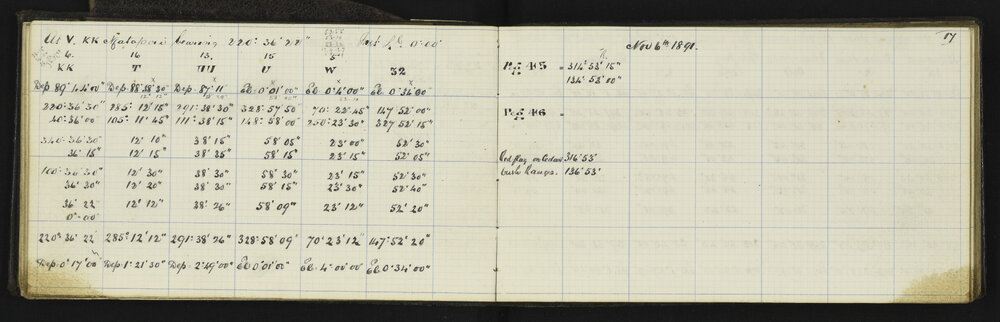 At V. KK Ngatapawa bearing 220° 36' 22" Inst. 0° 00'
6. 16 13. 15 5
KK T U W 32
Dep: 89° 44' 00" Dep: 88° 38' 30" Dep: 87° 11' El: 0° 01' 00" El: 0° 4' 00" El: 0° 34' 00"
220° 36' 30" 285° 12' 15" 291° 38' 30" 328° 57' 50" 70° 22' 45" 147° 52' 00"
40° 36' 00" 105° 11' 45" 111° 38' 15" 148° 58' 00" 250° 23' 30" 327° 52' 15"
340° 36' 30" 12' 10" 38' 15" 58' 05" 23' 00" 52' 30"
36' 15" 12' 15" 38' 25" 58' 15" 23' 15" 52' 05"
100° 36' 30" 12' 30" 38' 30" 58' 30" 23' 15" 52' 30"
36' 30" 12' 20" 38' 30" 58' 15" 23' 30" 52' 40"
36' 22 12' 12" 38' 26" 58' 09" 23' 12" 52' 20"
0° 00'
220° 36' 22" 285° 12' 12" 291° 38' 26" 328° 58' 09" 70° 23' 12" 147° 52' 20"
Dep: 0° 17' 00" Dep: 1° 21' 30" Dep: 2° 49' 00" El: 0° 01' 00" El: 4° 00' 00" El: 0° 34' 00"
17
Nov 6th 1891.
45 = 314° 53' 15"
134° 53' 00"
46 =
Red flag on Cedar 316° 53'
bush Range. 136° 53'